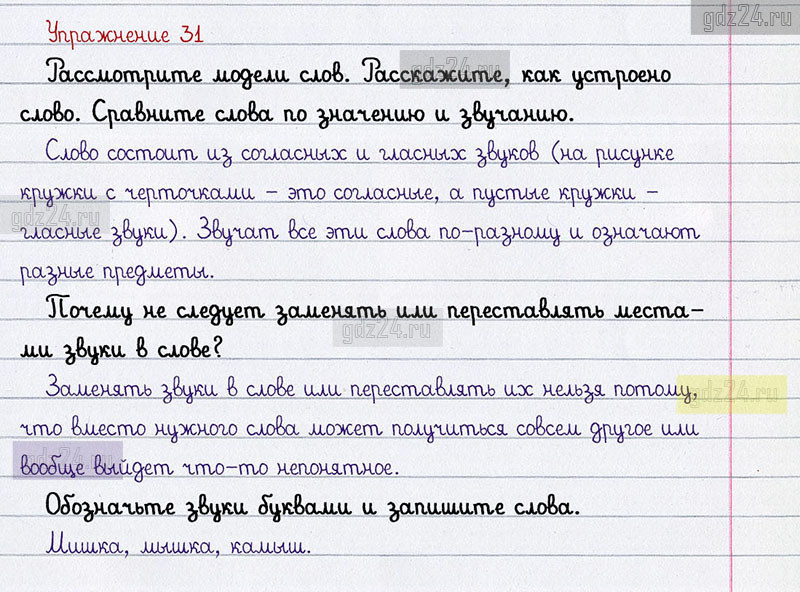 gdz24.ru
Упражнение 31
Рассмотрите модели слов. Расскажите, как устроено
gdz24.ru
слово. Сравните слова по значению и звучанию.
Слово состоит из согласных и гласных звуков (на рисунке
кружки с черточками – это согласные, а пустые кружки –
gdz24.ru
гласные звуки). Звучат все эти слова по-разному и означают
разные предметы.
Почему не следует заменять или переставлять места-
gdz24.ru
ми звуки в слове?
Заменять звуки в слове или переставлять их нельзя потому,
gdz24.ru
что вместо нужного слова может получиться совсем другое или
gdz24.ru
вообще выйдет что-то непонятное.
Обозначьте звуки буквами и запишите слова.
Мишка, мышка, камыш.